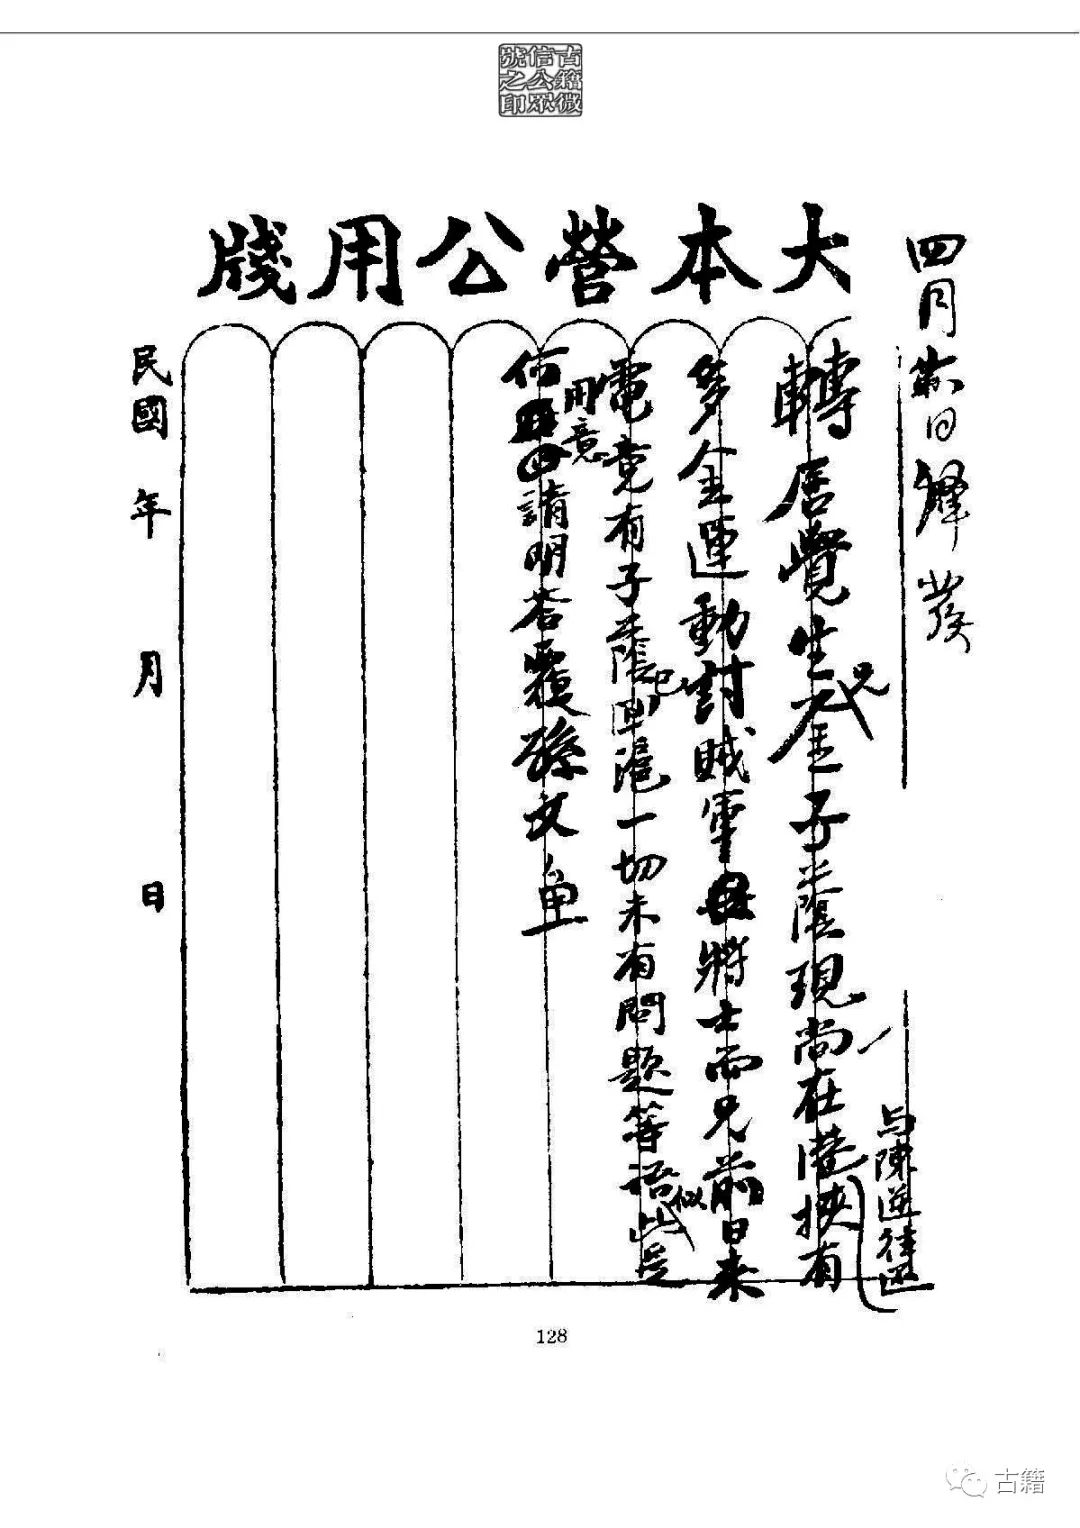 古籍微
信公眾
號之印
大本營公用牋
四月 日 發
轉居覺生兄金子蔭現尚在港挾有
与陳逆往函
多金運動討賊軍將士而兄前日來
電竟有子蔭已回滬一切未有問題等語此似是
何用意請明答覆孫文
民國 年 月 日
128
古籍